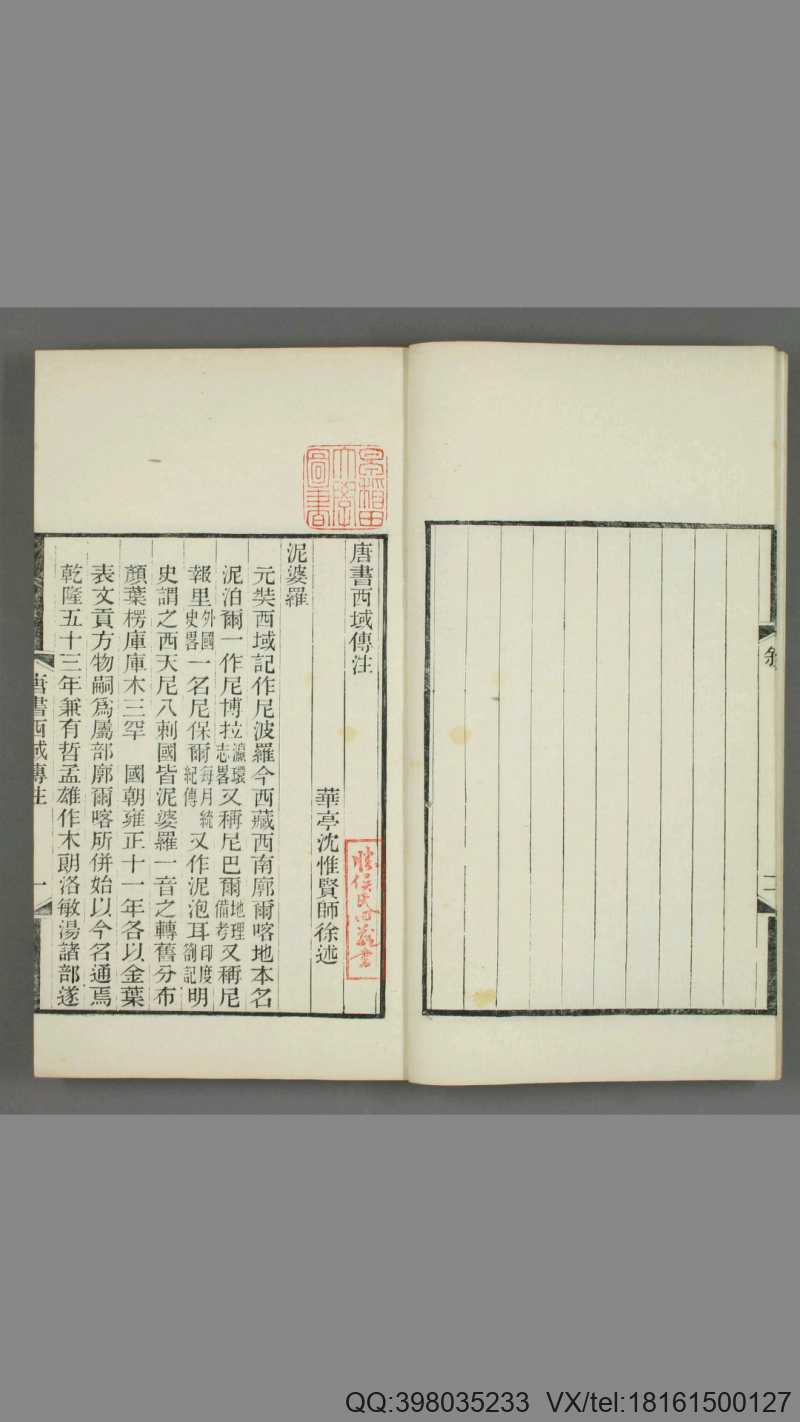 敘
二
早稻田大學圖書
唐書西域傳注
華亭沈惟賢師徐述
泥婆羅
元奘西域記作尼波羅今西藏西南廓爾喀地本名
泥泊爾一作尼博拉瀛環志畧又稱尼巴爾地理備考又稱尼
報里外國史畧一名尼保爾每月統紀傳又作泥泡耳印度劄記明
史謂之西天尼八剌國皆泥婆羅一音之轉舊分布
顏葉楞庫庫木三罕 國朝雍正十一年各以金葉
表文貢方物嗣爲屬部廓爾喀所併始以今名通焉
乾隆五十三年兼有哲孟雄作木朗洛敏湯諸部遂
唐書西域傳注
一
QQ:398035233 VX/tel:18161500127